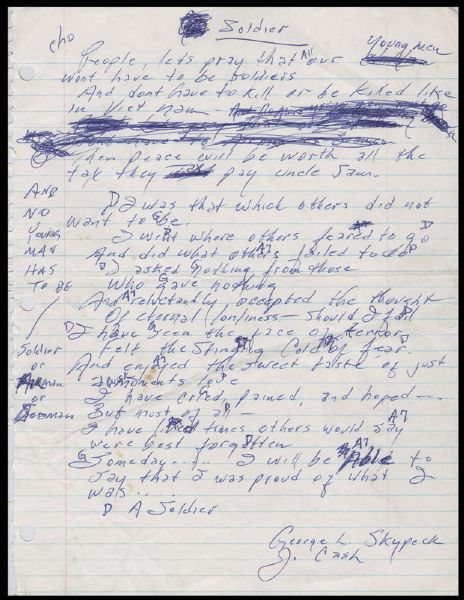 cho
Soldier
People, let's pray that All our Young Men
wont have to be soldiers
And dont have to kill or be killed like
in Viet nam
Then peace will be worth all the
tax they pay uncle Sam.
D I was that which others did not
want to be. G
I went where others feared to go D
And did what others failed to do A7 D
D I asked nothing from those G
Who gave nothing
And reluctantly, accepted the thought A7
Of eternal lonliness – should I fail
D I have seen the face of terror, G
felt the stinging cold of fear. D
And enjoyed the sweet taste of just A7
a moments love
I have cried, pained, and hoped ---
G But most of all –
I have lived times others would say A7
were best forgotten
G Someday..... I will be Able to A7
Say that I was proud of what I
was ....
D A Soldier
AND
NO
Young
MAN
HAS
TO BE
Soldier
or
or
George L. Skypeck
J. Cash